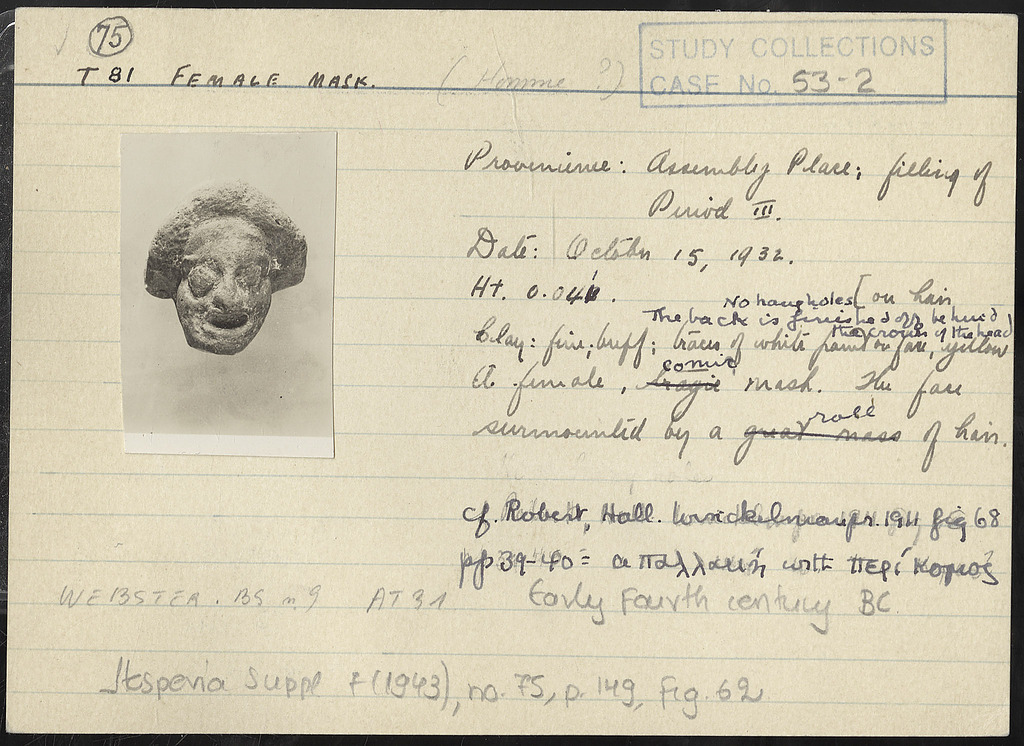 75
T 81 FEMALE MASK. (Homme ?)
STUDY COLLECTIONS
CASE No. 53-2
Provenience: Assembly Place; filling of
Period III.
Date: October 15, 1932.
Ht. 0.041.
No hang holes [on hair
The back is finished off behind
the crown of the head
Clay: fine; buff; traces of white paint on face, yellow
comic
A female, tragic mask. The face
roll
surmounted by a great mass of hair.
cf. Robert, Hall. Winckelmannpr. 1911 fig 68
pp 39-40 = a παλλακή with περίκομος
WEBSTER. BS n. 9 AT 31
Early Fourth century BC.
Hesperia Suppl 7 (1943), no. 75, p. 149, Fig. 62